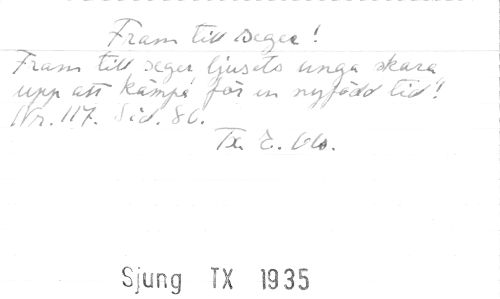 Fram till seger!
Fram till seger ljusets unga skara
upp att kämpa för en nyfödd tid!
Nr. 117. Sid. 86.
Tx. E.
Sjung TX 1935